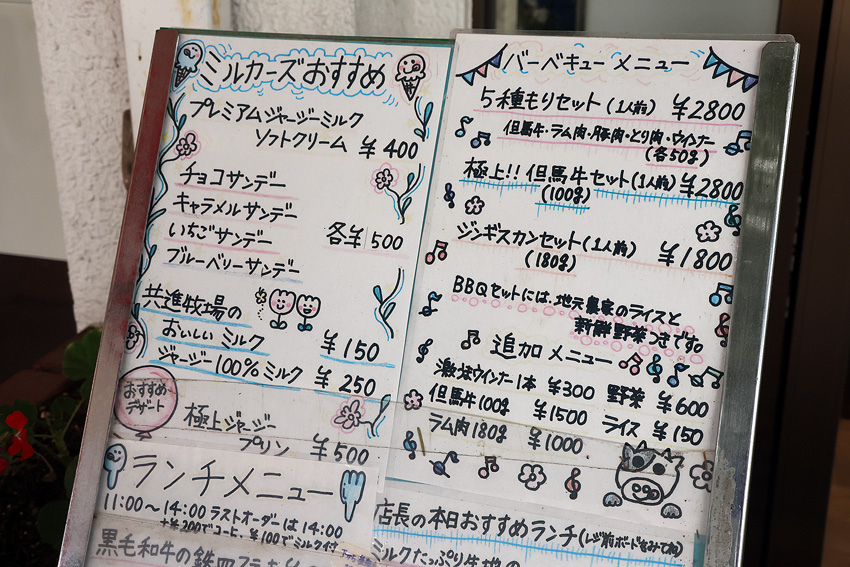 ミルカーズおすすめ
プレミアムジャージーミルク
ソフトクリーム ¥400
チョコサンデー
キャラメルサンデー
いちごサンデー
ブルーベリーサンデー
各¥500
共進牧場の
おいしいミルク ¥150
ジャージー100%ミルク ¥250
おすすめ
デザート
極上ジャージー
プリン ¥500
ランチメニュー
11:00～14:00 ラストオーダーは14:00
+¥200でコーヒ、¥100でミルク付
黒毛和牛の鉄
バーベキューメニュー
5種もりセット(1人前) ¥2800
但馬牛・ラム肉・豚肉・とり肉・ウインナー
(各50g)
極上!!但馬牛セット(1人前) ¥2800
(100g)
ジンギスカンセット(1人前) ¥1800
(180g)
BBQセットには、地元農家のライスと
新鮮野菜つきです。
追加メニュー
激太ウインナー1本 ¥300 野菜 ¥600
但馬牛100g ¥1500 ライス ¥150
ラム肉180g ¥1000
店長の本日おすすめランチ(レジ前ボードをみてね)
ミルクたっぷり生地の